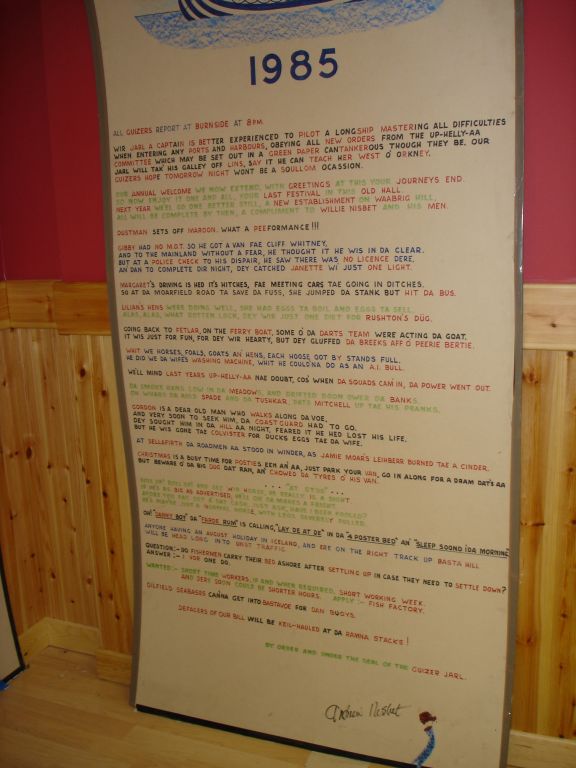 1985
ALL GUIZERS REPORT AT BURNSIDE AT 8PM.
WIR JARL A CAPTAIN IS BETTER EXPERIENCED TO PILOT A LONGSHIP MASTERING ALL DIFFICULTIES
WHEN ENTERING ANY PORTS AND HARBOURS, OBEYING ALL NEW ORDERS FROM THE UP-HELLY-AA
COMMITTEE WHICH MAY BE SET OUT IN A GREEN PAPER CANTANKEROUS THOUGH THEY BE. OUR
JARL WILL TAK' HIS GALLEY OFF LINS, SAY IT HE CAN TEACH HER WEST O' ORKNEY.
GUIZERS HOPE TOMORROW NIGHT WONT BE A SOULLOM OCASSION.
OUR ANNUAL WELCOME WE NOW EXTEND, WITH GREETINGS AT THIS YOUR JOURNEYS END.
SO NOW ENJOY IT ONE AND ALL, YOUR LAST FESTIVAL IN THIS OLD HALL.
NEXT YEAR WE'LL GO ONE BETTER STILL, A NEW ESTABLISHMENT ON WAABRIG HILL,
ALL WILL BE COMPLETE BY THEN, A COMPLIMENT TO WILLIE NISBET AND HIS MEN.
DUSTMAN SETS OFF MAROON. WHAT A PEEFORMANCE!!!
GIBBY HAD NO M.O.T. SO HE GOT A VAN FAE CLIFF WHITNEY,
AND TO THE MAINLAND WITHOUT A FEAR, HE THOUGHT IT HE WIS IN DA CLEAR.
BUT AT A POLICE CHECK TO HIS DISPAIR, HE SAW THERE WAS NO LICENCE DERE,
AN DAN TO COMPLETE DIR NIGHT, DEY CATCHED JANETTE WI' JUST ONE LIGHT.
MARGARET'S DRIVING IS HED IT'S HITCHES, FAE MEETING CARS TAE GOING IN DITCHES.
SO AT DA MOARFIELD ROAD TA SAVE DA FUSS, SHE JUMPED DA STANK BUT HIT DA BUS.
LILIAN'S HENS WERE DOING WELL, SHE HAD EGGS TA BOIL AND EGGS TA SELL.
ALAS, ALAS, WHAT ROTTEN LUCK, DEY WIR JUST ONE DIET FOR RUSHTON'S DUG.
GOING BACK TO FETLAR, ON THE FERRY BOAT, SOME O' DA DARTS TEAM WERE ACTING DA GOAT,
IT WIS JUST FOR FUN, FOR DEY WIR HEARTY, BUT DEY GLUFFED DA BREEKS AFF O' PEERIE BERTIE.
WAIT WE HORSES, FOALS, GOATS AN' HENS, EACH HOOSE OOT BY STANDS FULL,
HE DID WE DA WIFE'S WASHING MACHINE, WHIT HE COULD'NA DO AS AN A.I. BULL.
WE'LL MIND LAST YEARS UP-HELLY-AA NAE DOUBT, COS' WHEN DA SQUADS CAM IN, DA POWER WENT OUT.
DA SMOKE HANS LOW IN DA MEADOWS, AND DRIFTED DOON OWER DA BANKS,
DA SPADE AND DA TUSHKAR, DATS MITCHELL UP TAE HIS PRANKS.
GORDON IS A DEAR OLD MAN WHO WALKS ALANG DA VOE,
AND VERY SOON TO SEEK HIM, DA COAST GUARD HAD TO GO.
DEY SOUGHT HIM IN DA HILL AA NIGHT, FEARED IT HE HED LOST HIS LIFE.
BUT HE WIS GONE TAE COLVISTER FOR DUCKS EGGS TAE DA WIFE.
AT SELLAFIRTH DA ROADMEN AA STOOD IN WINDER, AS JAMIE MOAR'S LEIHBERR BURNED TAE A CINDER.
CHRISTMAS IS A BUSY TIME FOR POSTIES EEN AN' AA, JUST PARK YOUR VAN, GO IN ALONS FOR A DRAM DAT'S AA
BUT BEWARE O' DA BIG DUG DAT RAN, AN' CHOWED DA TYRES O' HIS VAN.
... "AT OTSO" ...
SEE WIR HORSE, HE REALLY IS A SIGHT
IF HE'S AS BIG AS ADVERTISED, HE'LL GIE DA MAIRES A FRIGHT.
JUST ASK, HAVE I BEEN FOOLED?
HE'S MAYBE JUST A NORMAL HORSE, WITH LEGS SEVERELY PULLED.
OH! "DANNY BOY" DA "FAROE RUM" IS CALLING, "LAY DE AT DE" IN DA "4 POSTER BED" AN' "SLEEP SOOND IDA MORNIN'"
ANYONE HAVING AN AUGUST HOLIDAY IN ICELAND, AND ERE ON THE RIGHT TRACK UP BASTA HILL
WILL BE HEAD LONG INTO UNST TRAFFIC.
QUESTION:- DO FISHERMEN CARRY THEIR BED ASHORE AFTER SETTLING UP IN CASE THEY NEED TO SETTLE DOWN?
ANSWER:- I VOR ONE DO.
WANTED:- SHORT TIME WORKERS, IF AND WHEN REQUIRED, SHORT WORKING WEEK.
AND DERE SOON COULD BE SHORTER HOURS. APPLY:- FISH FACTORY.
OILFIELD SEABASES CANNA GET INTO BASTAVOE FOR DAN BUOYS.
DEFACERS OF OUR BILL WILL BE KEIL-HAULED AT DA RAMNA STACKS!
BY ORDER AND UNDER THE SEAL OF THE GUIZER JARL.
Nisbet